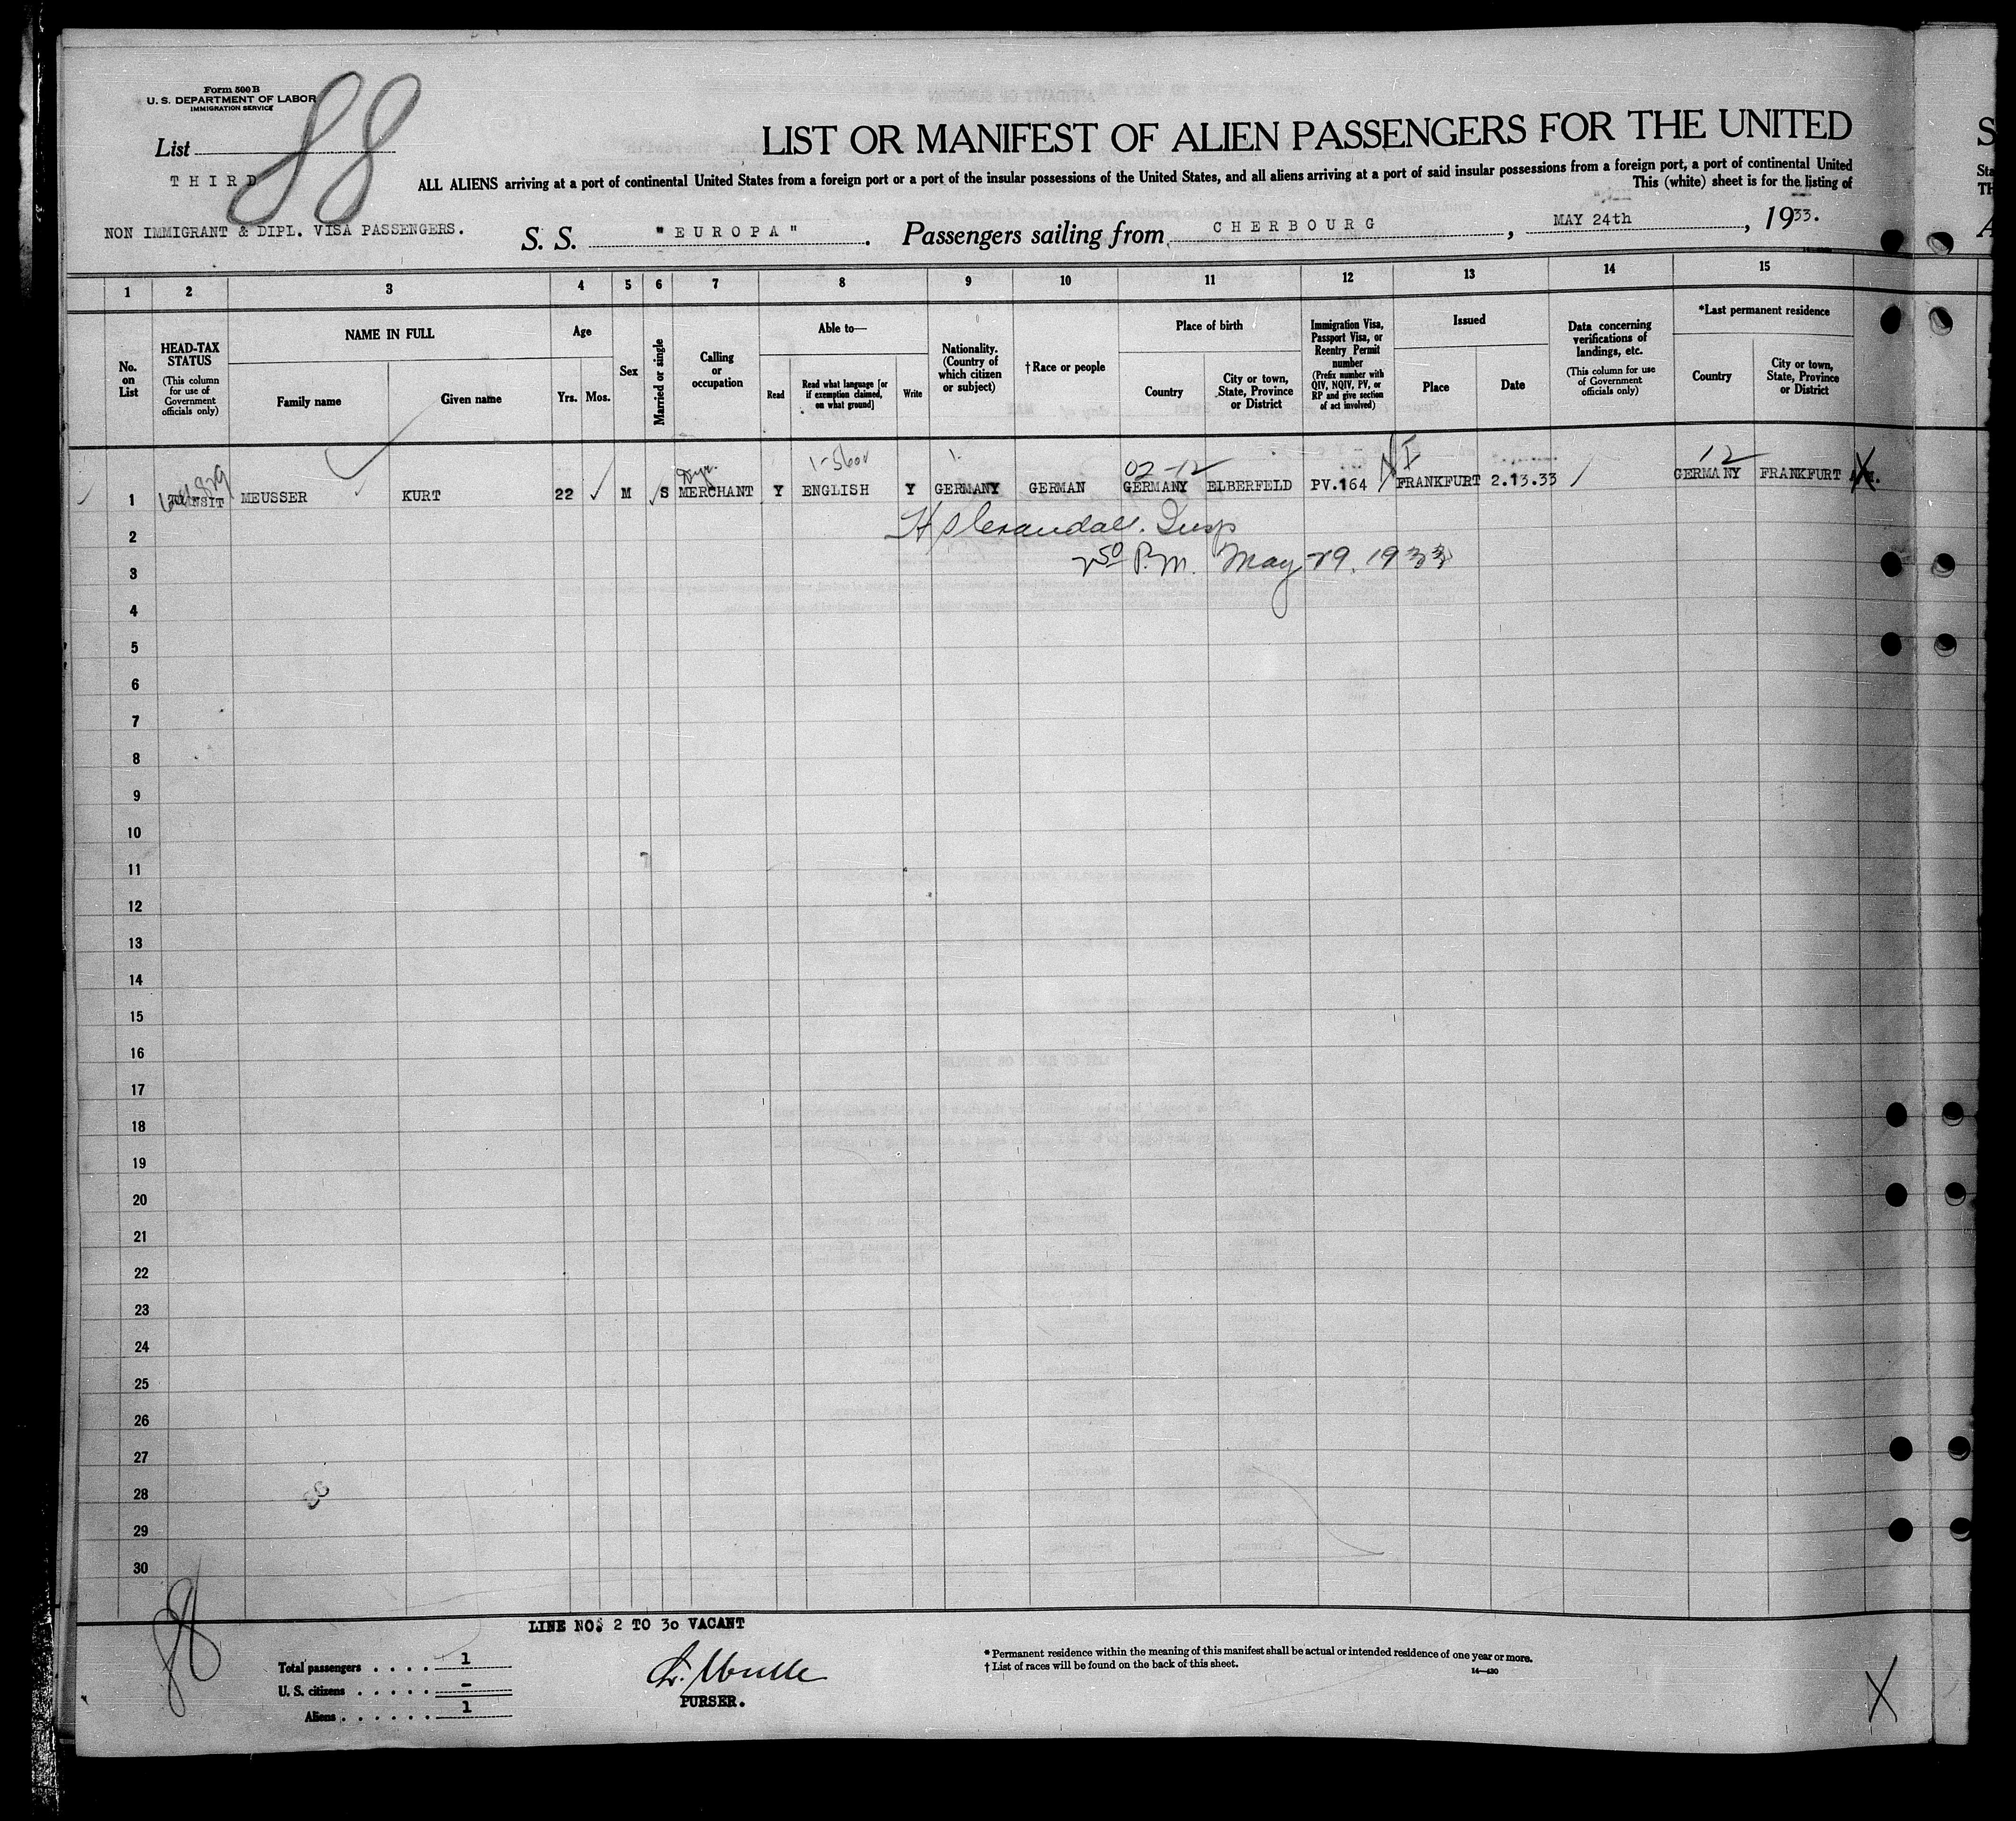 Form 500 B
U. S. DEPARTMENT OF LABOR
IMMIGRATION SERVICE
List
88
THIRD
NON IMMIGRANT & DIPL. VISA PASSENGERS.
LIST OR MANIFEST OF ALIEN PASSENGERS FOR THE UNITED
S
ALL ALIENS arriving at a port of continental United States from a foreign port or a port of the insular possessions of the United States, and all aliens arriving at a port of said insular possessions from a foreign port, a port of continental United
Sta
This (white) sheet is for the listing of
Th
S. S. "EUROPA". Passengers sailing from CHERBOURG, MAY 24th, 1933.
1 2 3 4 5 6 7 8 9 10 11 12 13 14 15
No. on List
HEAD-TAX STATUS (This column for use of Government officials only)
NAME IN FULL
Family name
Given name
Age
Yrs. Mos.
Sex
Married or single
Calling or occupation
Able to—
Read
Read what language [or if exemption claimed, on what ground]
Write
Nationality. (Country of which citizen or subject)
† Race or people
Place of birth
Country
City or town, State, Province or District
Immigration Visa, Passport Visa, or Reentry Permit number (Prefix number with QIV, NQIV, PV, or RP and give section of act involved)
Issued
Place
Date
Data concerning verifications of landings, etc. (This column for use of Government officials only)
*Last permanent residence
Country
City or town, State, Province or District
02-12
12
1 TRANSIT MEUSSER KURT 22 M S MERCHANT Y ENGLISH Y GERMANY GERMAN GERMANY ELBERFELD PV.164 FRANKFURT 2.13.33 GERMANY FRANKFURT
2
Insp
3
P.M. May 29, 1933
4
5
6
7
8
9
10
11
12
13
14
15
16
17
18
19
20
21
22
23
24
25
26
27
28
29
30
88
LINE NOS 2 TO 30 VACANT
Total passengers . . . . 1
U. S. citizens . . . . . -
Aliens . . . . . . 1
PURSER.
* Permanent residence within the meaning of this manifest shall be actual or intended residence of one year or more.
† List of races will be found on the back of this sheet.
14—430
X